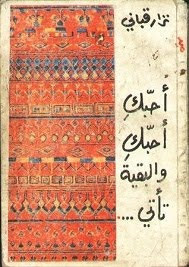 نزار قباني
أحبّك
أحبّكِ
والبقية
تأتي ....